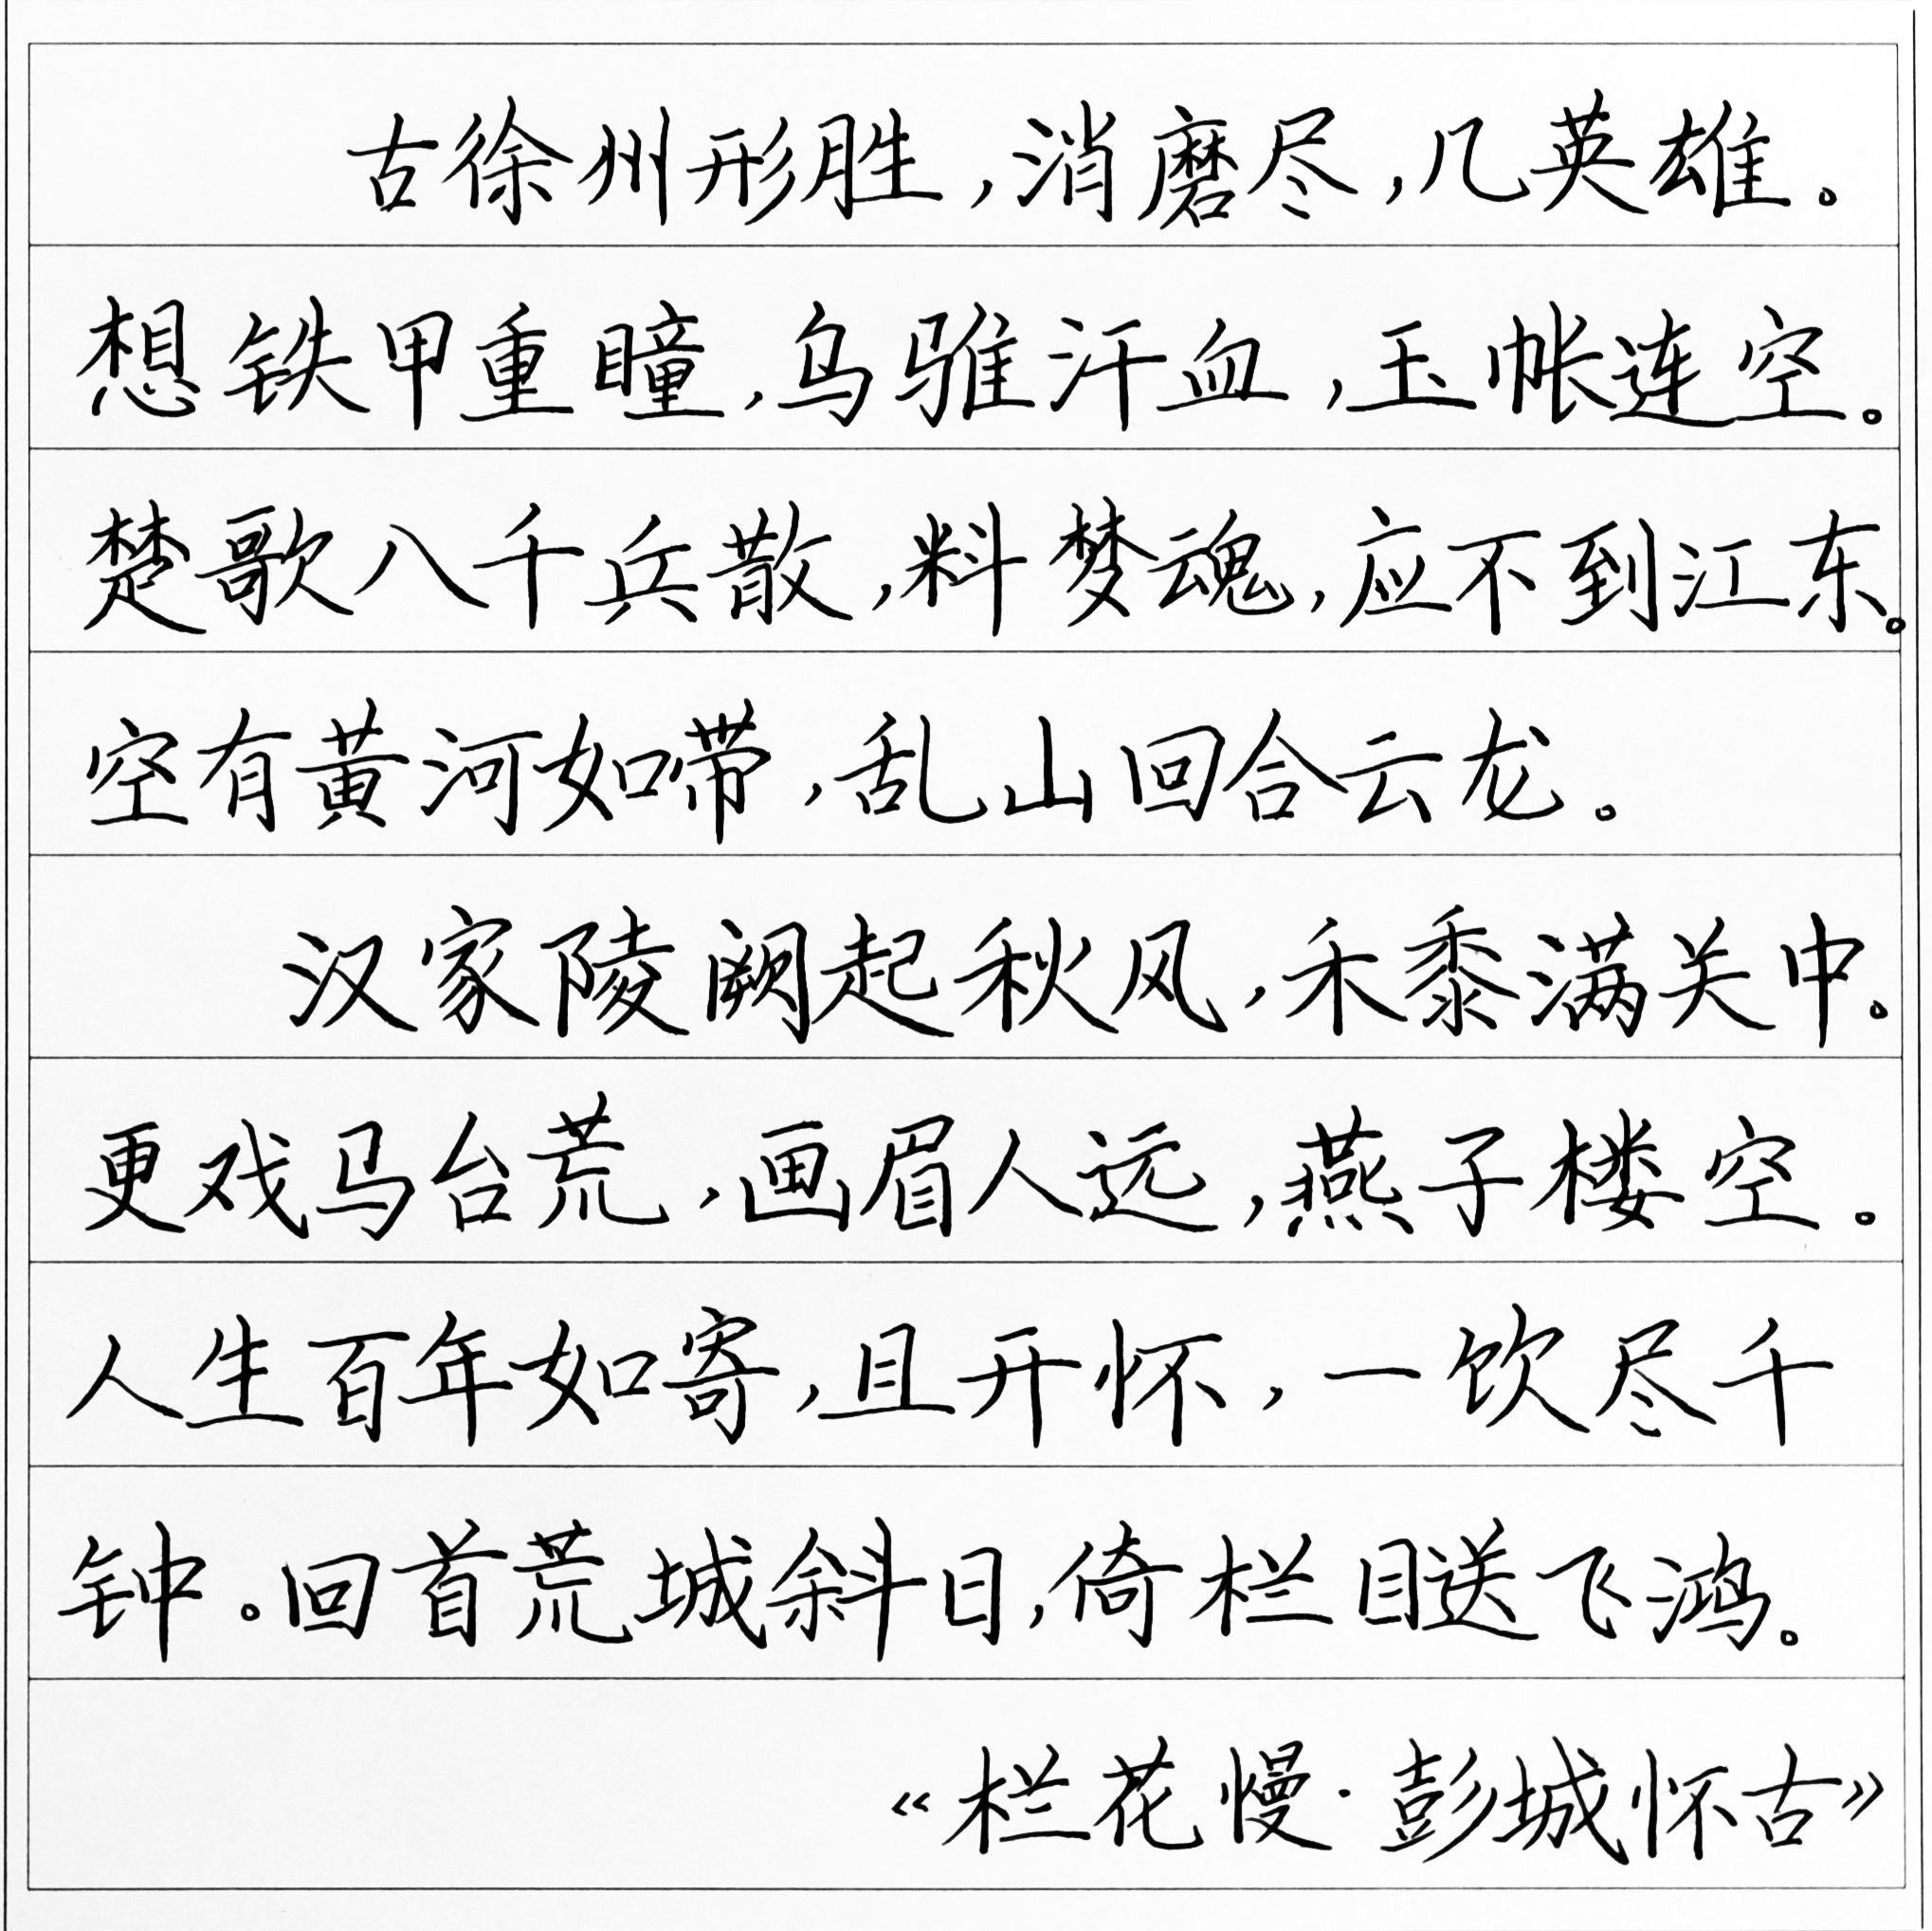 古徐州形胜,消磨尽,几英雄。
想铁甲重瞳,乌骓汗血,玉帐连空。
楚歌八千兵散,料梦魂,应不到江东。
空有黄河如带,乱山回合云龙。
汉家陵阙起秋风,禾黍满关中。
更戏马台荒,画眉人远,燕子楼空。
人生百年如寄,且开怀,一饮尽千
钟。回首荒城斜日,倚栏目送飞鸿。
《栏花慢·彭城怀古》